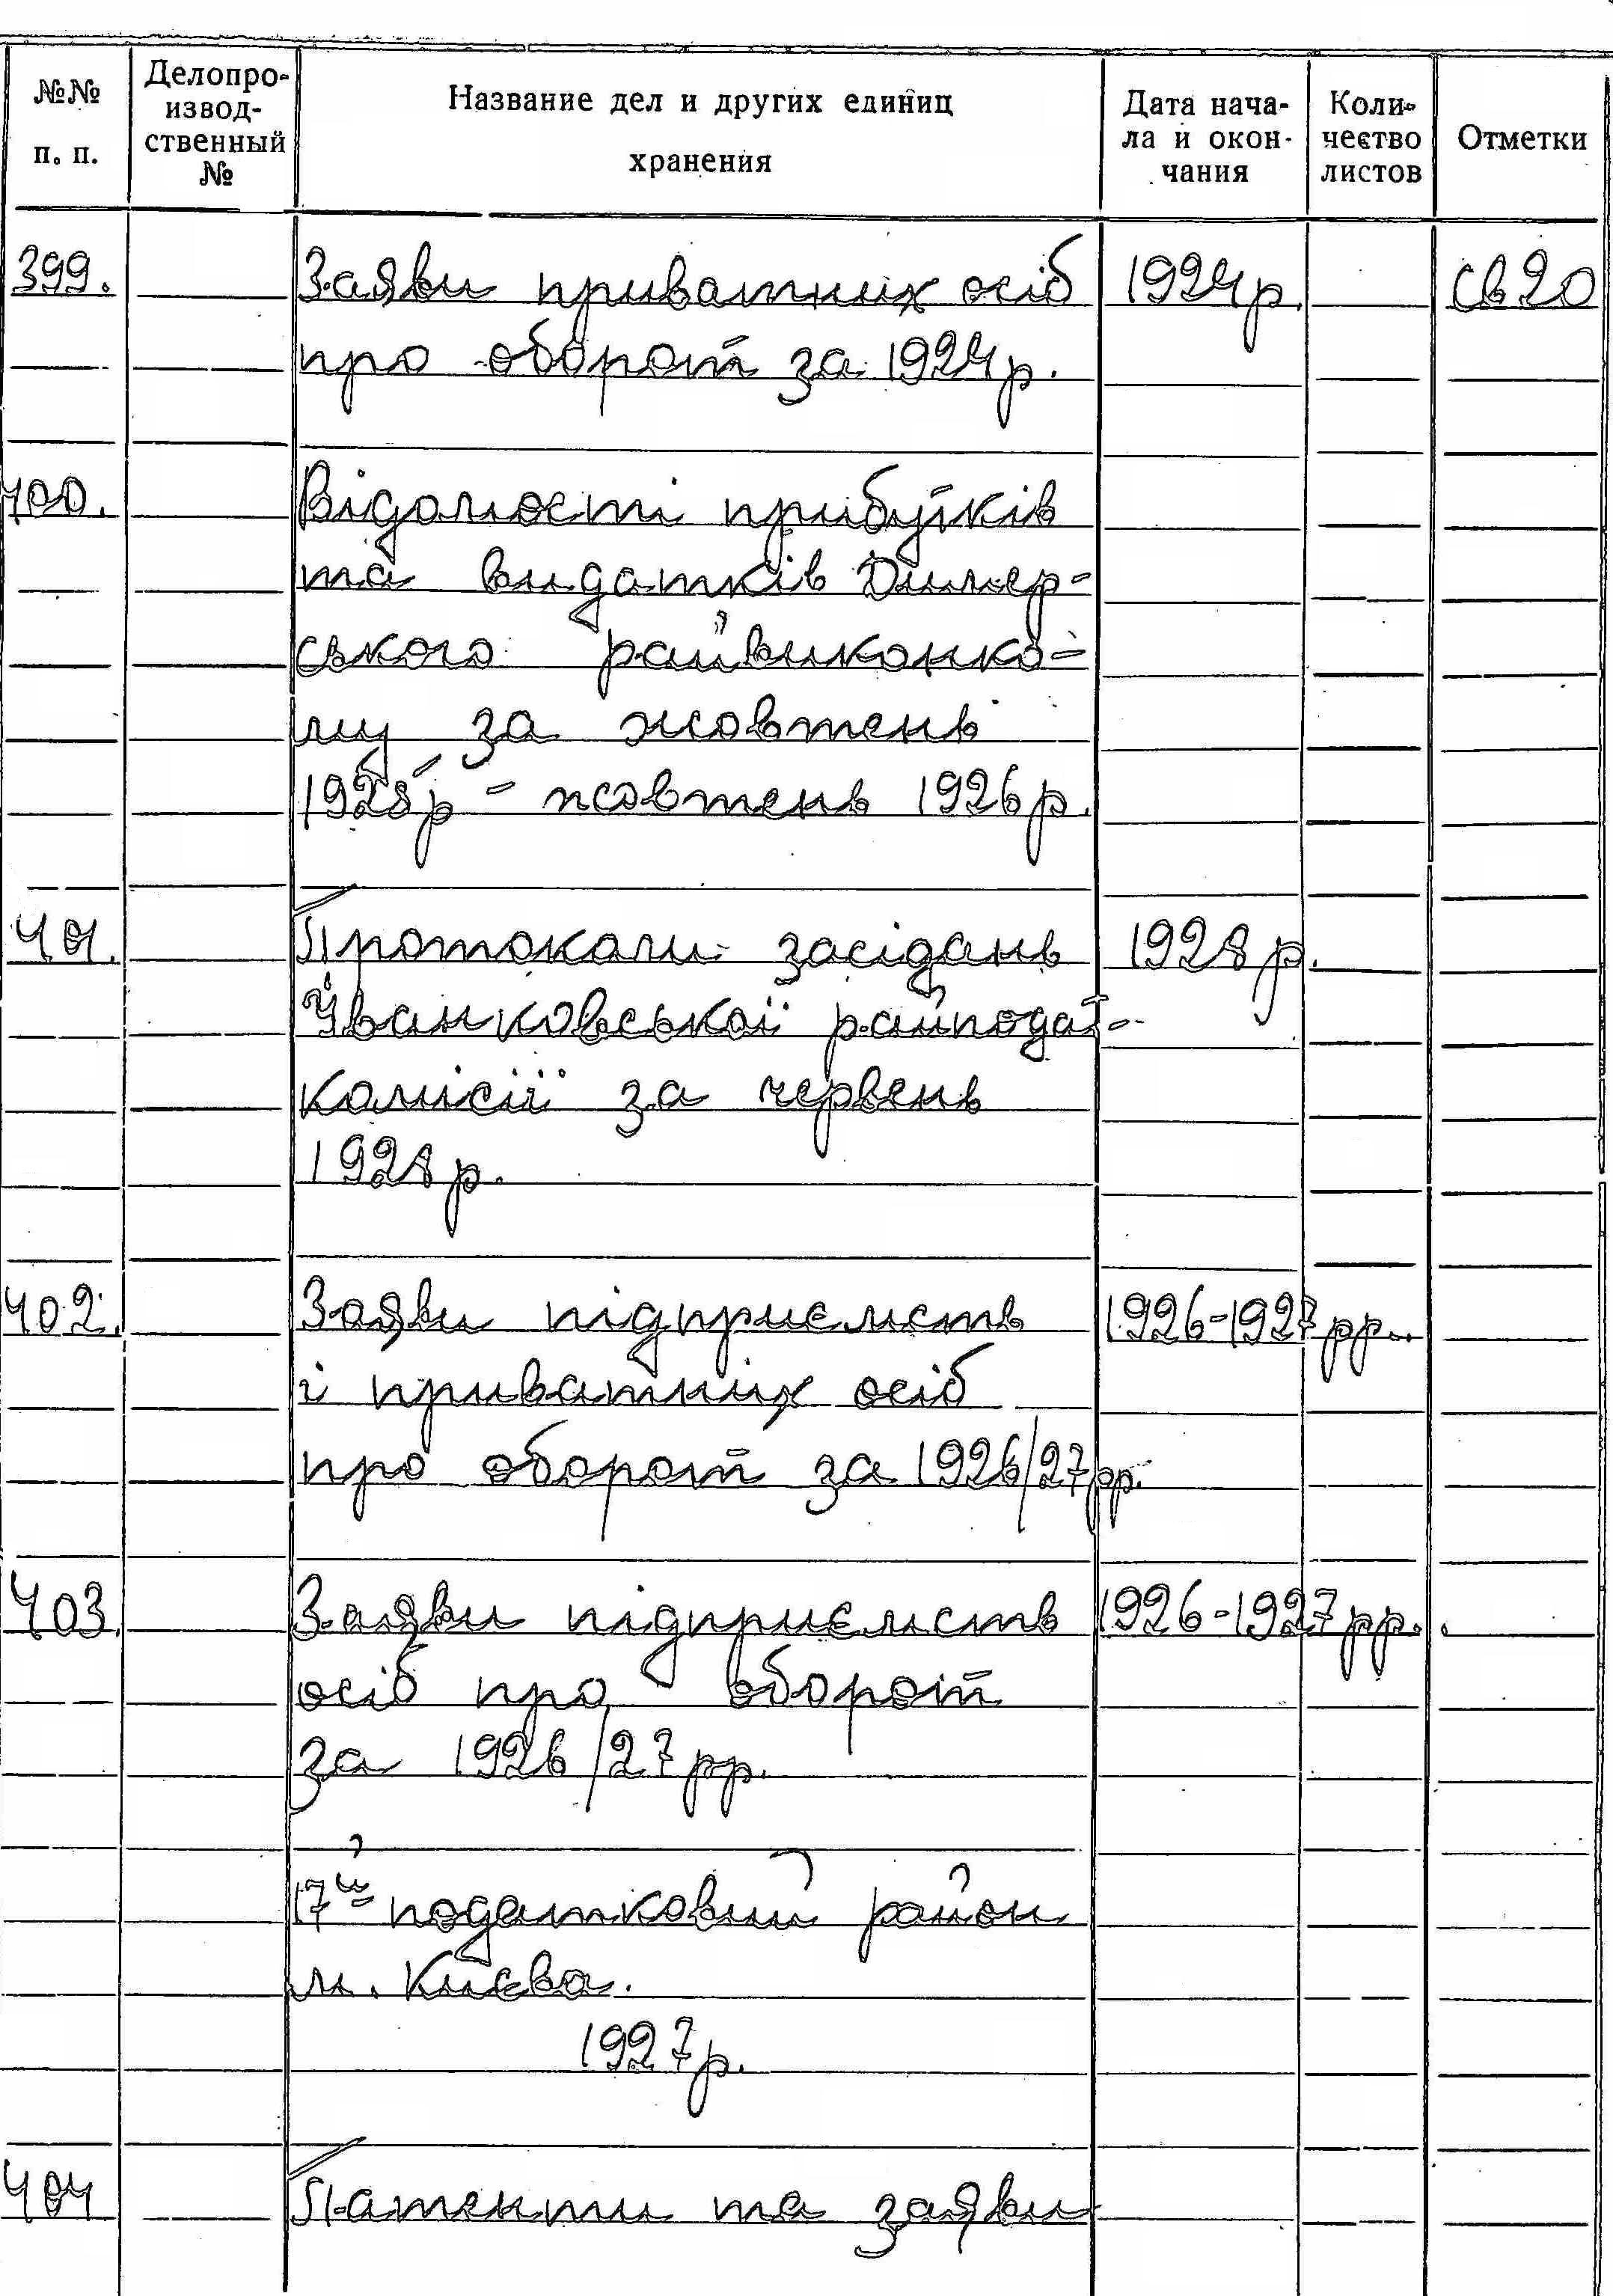 №№ п. п.
Делопро-
извод-
ственный
№
Название дел и других единиц
хранения
Дата нача-
ла и окон-
чания
Коли-
чество
листов
Отметки
399. Заяви приватних осіб 1924р. св20
про оборот за 1924р.
400. Відомості прибутків
та видатків Димер-
ського райвиконко-
му за жовтень
1925р - жовтень 1926р.
401. Протокали засідань 1928р.
Іванковської райподат-
комісії за червень
1928р.
402. Заяви підприємств 1926-1927рр.
і приватних осіб
про оборот за 1926/27рр.
403. Заяви підприємств 1926-1927рр.
осіб про оборот
за 1926/27рр.
17й податковий район
м. Києва.
1927р.
404 Патенти та заяви